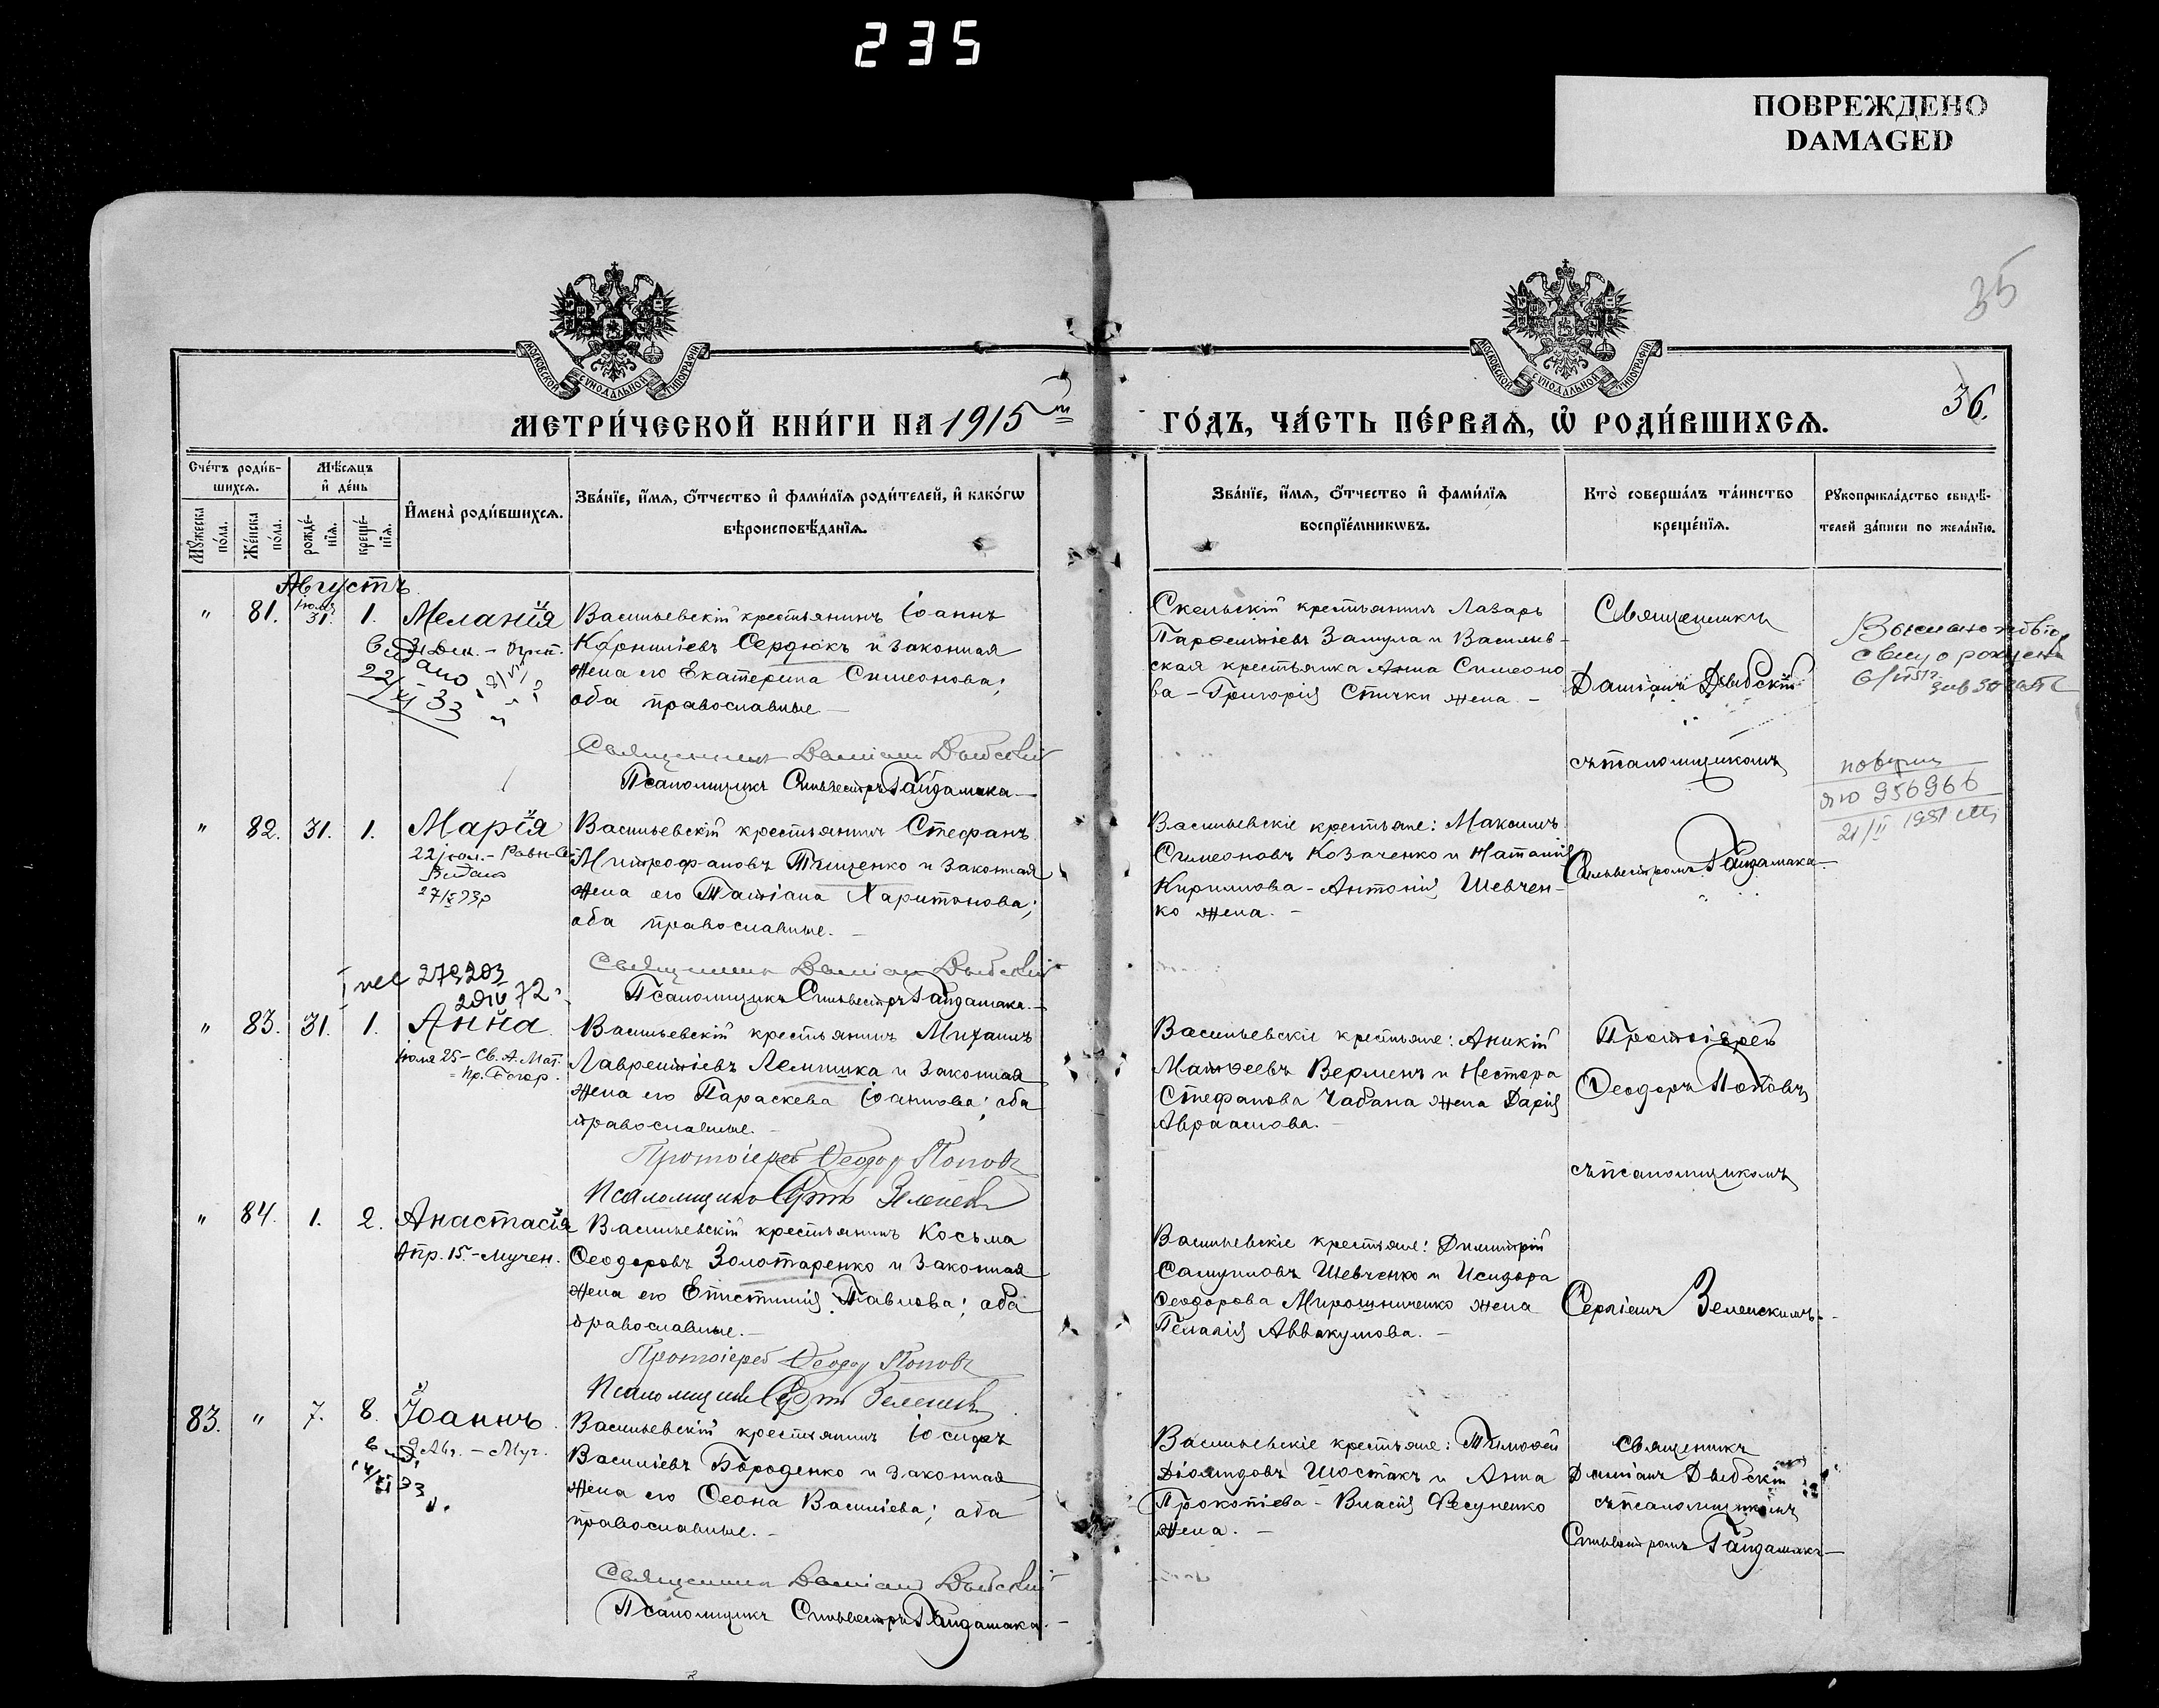 235
ПОВРЕЖДЕНО
DAMAGED
35
МОСКОВСКОЙ СѴНОДАЛЬНОЙ ТИПОГРАФІИ
МОСКОВСКОЙ СѴНОДАЛЬНОЙ ТИПОГРАФІИ
МЕТРИ́ЧЕСКОЙ КНИ́ГИ НА 1915 й
ГО́ДЪ, ЧА́СТЬ ПЕ́РВАѦ, Ѽ РОДИ́ВШИХСѦ.
36.
Сче́тъ роди́в-
шихсѧ.
Мѣ́сѧцъ
и҆ де́нь
Мꙋ́жеска по́ла.
Же́нска по́ла.
рожде́-нїѧ.
креще́-нїѧ.
И҆мена̀ роди́вшихсѧ.
Зва́нїе, и҆́мѧ, ѻ҆́тчество и҆ фами́лїѧ роди́телей, и҆ како́гѡ
вѣроисповѣ́данїѧ.
Зва́нїе, и҆́мѧ, ѻ҆́тчество и҆ фами́лїѧ
воспрїе́мникѡвъ.
Кто̀ соверша́лъ та́инство
креще́нїѧ.
Рꙋкоприкла́дство свидѣ́-
телей за́писи по жела́нїю.
Августъ
" 81. Іюля 31. 1. Меланія
22/XI 33
Васильевскій крестьянинъ Іоаннъ
Корниліевъ Сердюкъ и законная
жена его Екатерина Симеонова;
оба православные. —
Священникъ Даміанъ Дыбскій
Псаломщикъ Сильвестръ Гайдамака —
Скельскій крестьянинъ Лазарь
Парѳеніевъ Замула и Васильев-
ская крестьянка Анна Симеоно
ва — Григорія Спички жена. —
Священникъ
Даміанъ Дыбскій
съ псаломщикомъ
Сильвестромъ Гайдамака. —
повторн
ЯЮ 956966
21/II 1981
" 82. 31. 1. Марія
22 іюл. — Равн-Св.
Видано
Васильевскій крестьянинъ Стефанъ
Митрофановъ Тищенко и законная
жена его Татіана Харитонова;
оба православные. —
Священникъ Даміанъ Дыбскій
Псаломщикъ Сильвестръ Гайдамака. —
Васильевскіе крестьяне: Максимъ
Симеоновъ Козаченко и Наталія
Кириллова — Антонія Шевчен-
ко жена. —
279203
" 83. 31. 1. Анна
Іюля 25 — Св. А. Мат.
Пр. Богор.
Васильевскій крестьянинъ Михаилъ
Лаврентіевъ Лемишка и законная
жена его Параскева Іоаннова; оба
православные. —
Протоіерей Ѳеодоръ Поповъ
Псаломщикъ Сергій Зеленскій
Васильевскіе крестьяне: Аникій
Матѳеевъ Верменъ и Нестора
Стефанова Чабана жена Дарія
Авраамова. —
Протоіерей
Ѳеодоръ Поповъ
съ псаломщикомъ
Сергіемъ Зеленскимъ. —
" 84. 1. 2. Анастасія
Апр. 15. — Мучен.
Васильевскій крестьянинъ Косьма
Ѳеодоровъ Золотаренко и законная
жена его Епистимія Павлова; оба
православные. —
Протоіерей Ѳеодоръ Поповъ
Псаломщикъ Сергій Зеленскій
Васильевскіе крестьяне: Димитрій
Самуиловъ Шевченко и Исидора
Ѳеодорова Мирошниченко жена
Пелагія Аввакумова. —
83. " 7. 8. Іоаннъ
9 Авг. — Муч.
Васильевскій крестьянинъ Іосифъ
Василіевъ Бороденко и законная
жена его Ѳеона Василіева; оба
православные. —
Священникъ Даміанъ Дыбскій
Псаломщикъ Сильвестръ Гайдамака. —
Васильевскіе крестьяне: Тимоѳей
Діомидовъ Шостакъ и Анна
Прокопіева — Власія Фесуненко
жена. —
Священникъ
Даміанъ Дыбскій
съ псаломщикомъ
Сильвестромъ Гайдамака —